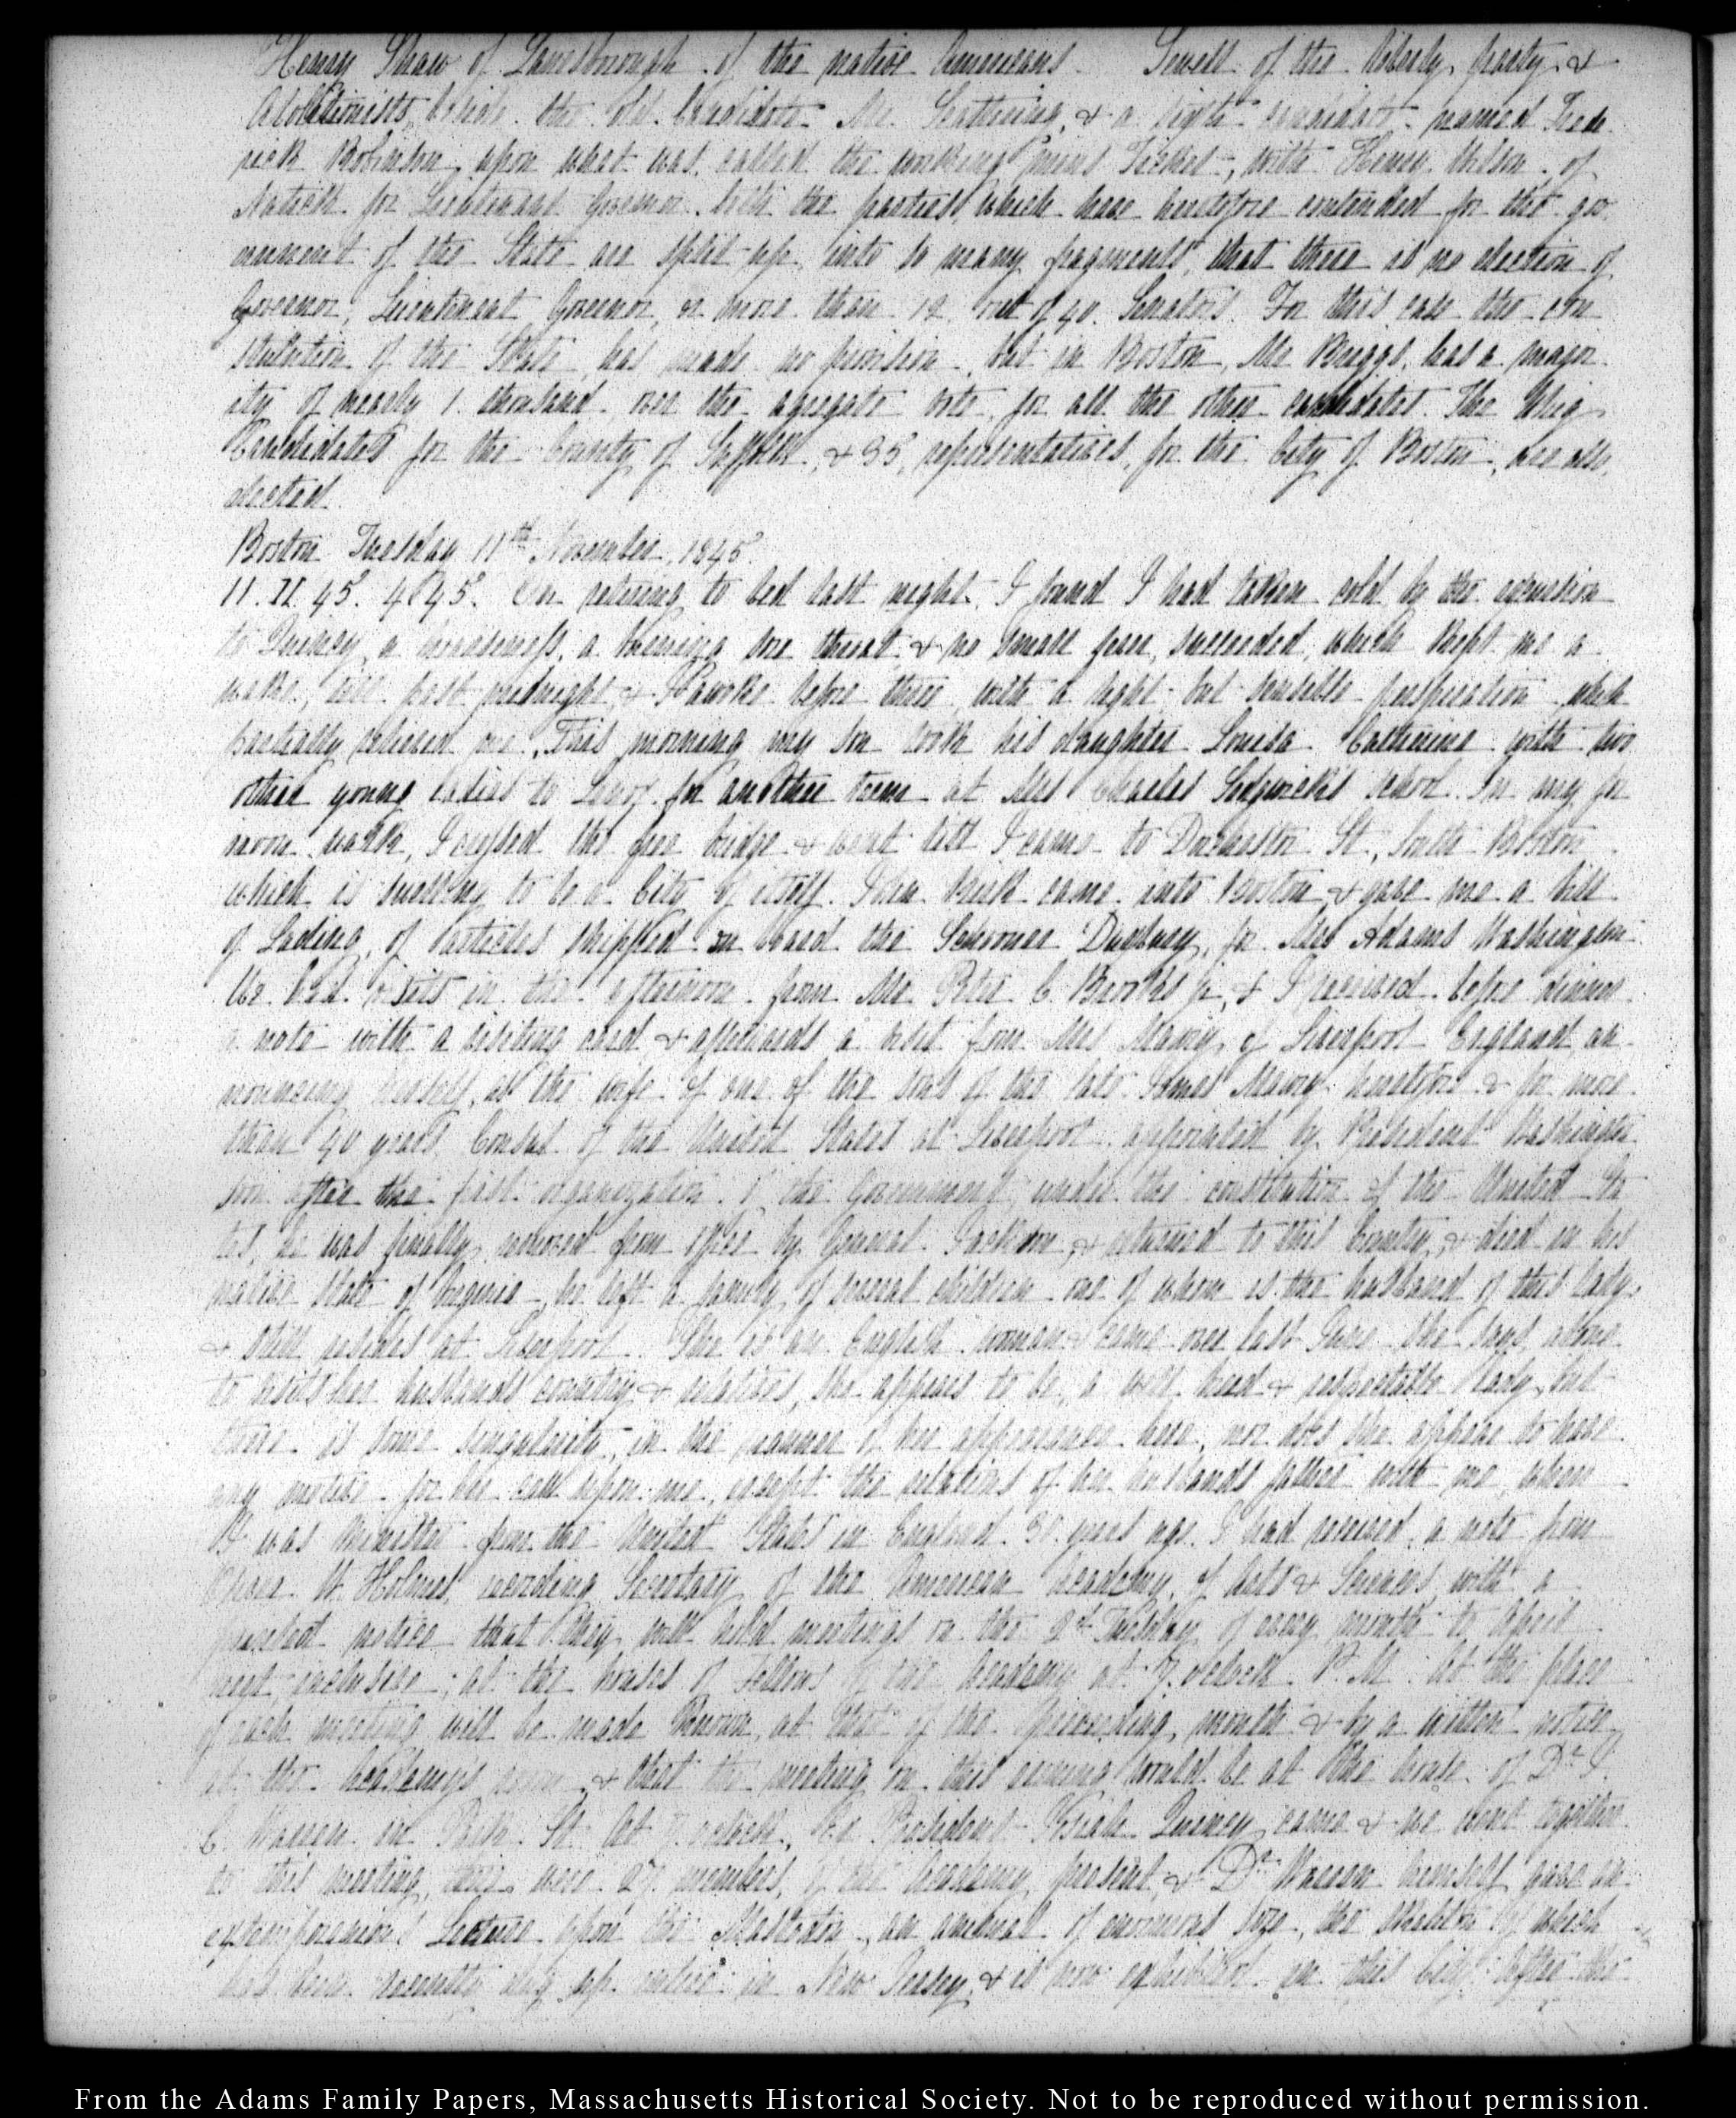 Henry Shaw of Lanesborough of the native Americans. Sewell of the Liberty party &
Abolitionists, beside the old Candidate Mr. & a candidate named Frede
rick Robinson, upon what was called the working mens Ticket, with Henry Wilson of
Natick for Lieutenant Governor. both the parties, which have heretofore contended for the go
vernment of the State are split up into so many fragments, that there is no election of
Governor, Lieutenant Governor, or more than 12 out of 40 Senators. For this case the con
stitution of the State has made no provision, but in Boston, Mr Briggs, has a major
ity of nearly 1 thousand over the agregate vote for all the other candidates. The Whig
Candidates for the County of Suffolk, & 35 representatives, for the City of Boston, are also,
elected.
Boston Tuesday 11th November, 1845.
11. II. 45. 4.45. On retiring to bed last night, I found I had taken cold by the excursion
to Quincy, a hoarseness, a sore throat, & no small fever, succeeded, which kept me a
wake, till past midnight, & I awoke before three with a light but sensible perspiration which
partially relieved me. This morning my Son took his daughter Louisa Catherine with two
other young ladies to Lenox for another term at Mrs Charles Sedgwick's school. In my fore
noon walk, I crossed the free bridge & went till I came to Dorchester St, South Boston
which is swelling to be a City of itself. John Kirk came into Boston, & gave me a bill
of Lading, of articles shipped on board the Schooner Duxbury, for Mrs Adams Washington.
We had visits in the afternoon from Mr Peter C. Brooks jr, & I received before dinner
a note with a visiting card & afterwards a visit from Mrs Maury of Liverpool England an
nouncing herself, as the wife of one of the sons of the late James Maury heretofore & for more
than 40 years, Consul of the United States at Liverpool appointed by President Washington
soon after the first organization of the Government, under the constitution of the United Sta
tes, he was finally removed from office by General Jackson, & returned to this Country, & died in his
native State of Virginia he left a family of several children one of whom is the husband of this Lady,
& still resides at Liverpool. She is an English woman & came over last June she says alone
to visit her husbands country & relatives, she appears to be, a well bred & respectable Lady, but
there is some singularity, in the manner of her appearance here, nor does she appear to have
any motive for her call upon me, except the relations of her husbands father with me when
I was Minister from the United States in England 30 years ago. I had received, a note from
W. Holmes, recording Secretary of the American Academy, of Arts & Sciences with a
printed notice that they will hold meetings on the 2d Tuesday of every month to April
next inclusive, at the houses of Fellows of the Academy at 7 oclock P.M. the place
of each meeting will be made known, at that of the preceeding, month & by a written notice
at the Academys room, & that the meeting on this evening would be at the house of Dr J.
C. Warren in Park St. At 7 oclock, Ex President Josiah Quincy came & we went together
to this meeting, there were 27 members, of the Academy, present, & Dr Warren himself gave an
extemporaneous Lecture upon the Mastodon, an animal of enormous size, the skeleton of which
has been recently dug up entire in New Jersey, & is now exhibited in this City. After the
From the Adams Family Papers, Massachusetts Historical Society. Not to be reproduced without permission.